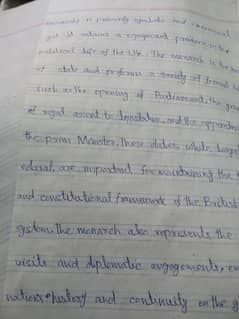 monarchy is primarily symbolic and ceremonial
yet it retains a significant position in the
political life of the UK. The monarch is the
of state and performs a variety of formal
such as the opening of Parliament, the
of royal assent to legislation, and the
the prime Minister. These duties, while
are important for maintaining the
and constitutional framework of the British
system. the monarch also represents the
visits and diplomatic engagements,
nations history and continuity on the